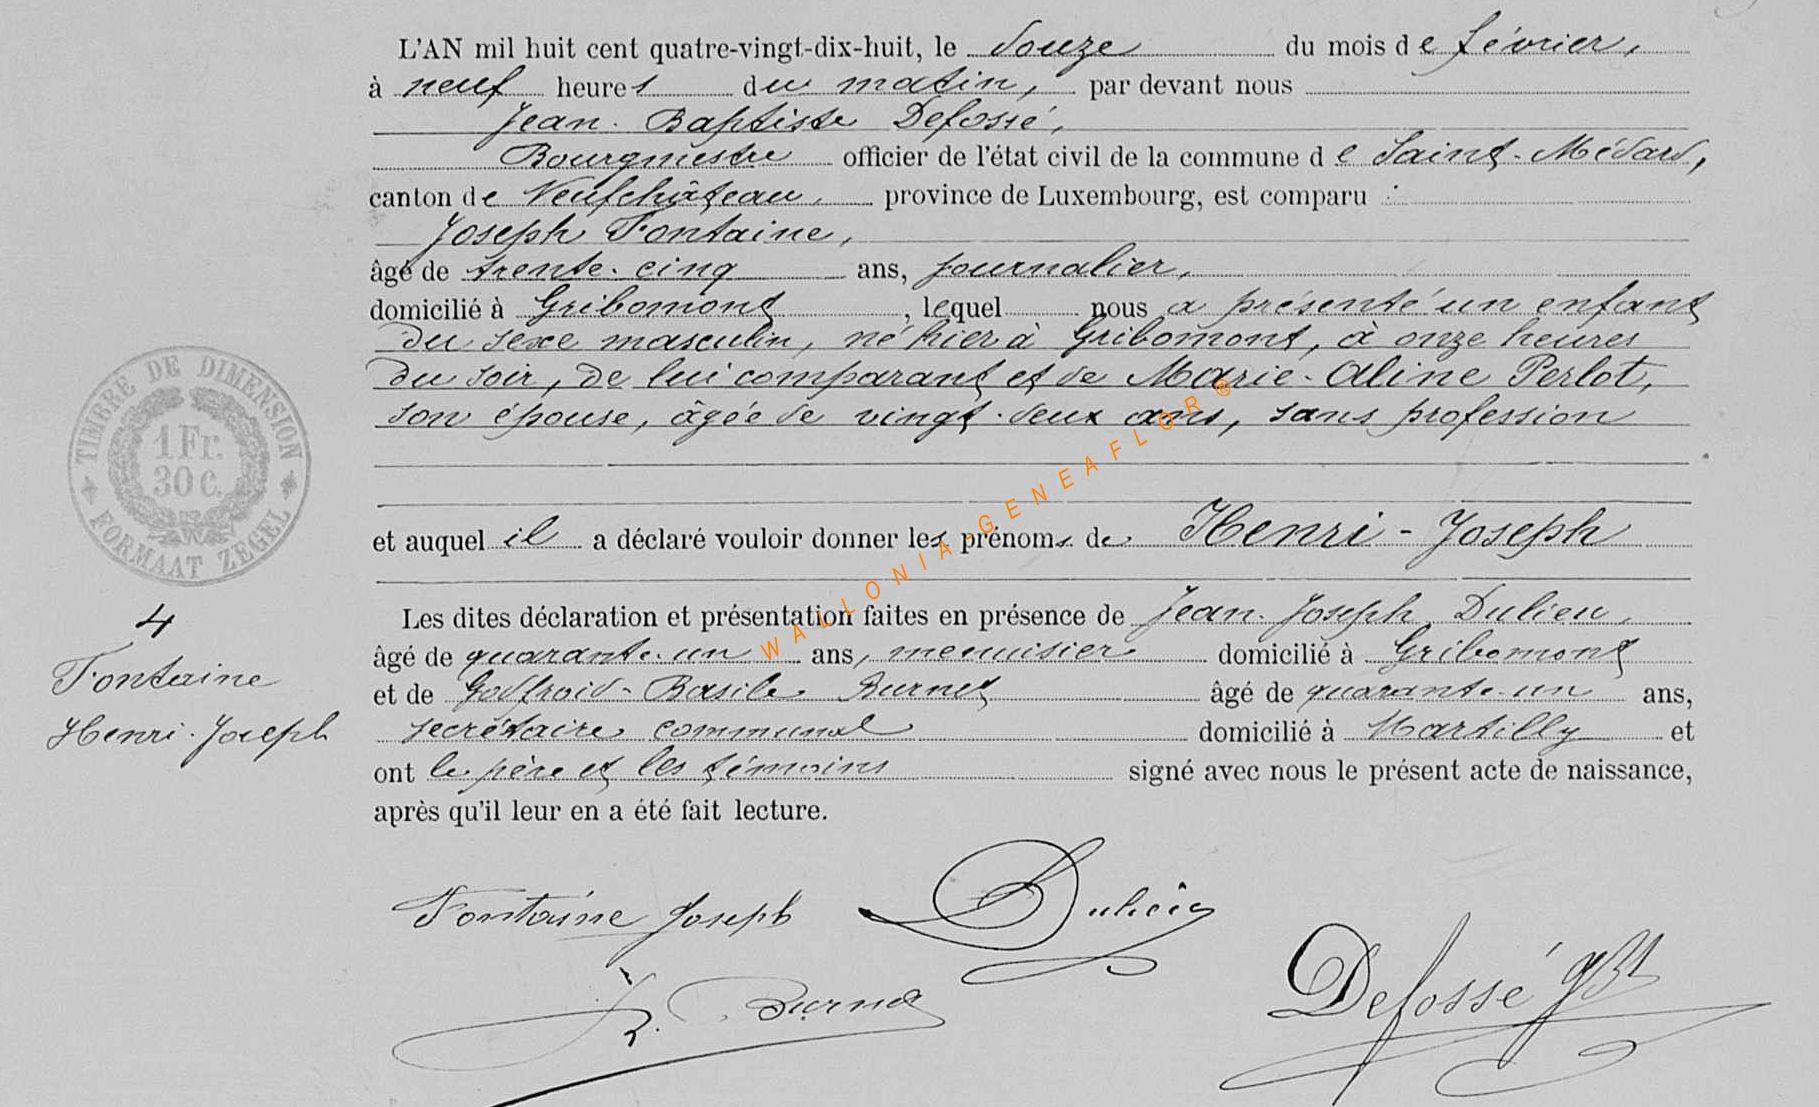 L'AN mil huit cent quatre-vingt-dix-huit, le douze du mois de février,
à neuf heures du matin, par devant nous
Jean-Baptiste Defossé,
Bourgmestre officier de l'état civil de la commune de Saint-Médard,
canton de Neufchâteau, province de Luxembourg, est comparu :
Joseph Fontaine,
âgé de trente-cinq ans, journalier,
domicilié à Gribomont, lequel nous a présenté un enfant
du sexe masculin, né hier à Gribomont, à onze heures
du soir, de lui comparant et de Marie-Aline Perlot,
son épouse, âgée de vingt-deux ans, sans profession
et auquel il a déclaré vouloir donner les prénoms de Henri-Joseph
Les dites déclaration et présentation faites en présence de Jean-Joseph Dulieu,
âgé de quarante-un ans, menuisier domicilié à Gribomont
et de Godfroid-Basile Burnet âgé de quarante-un ans,
secrétaire communal domicilié à Martilly et
ont le père et les témoins signé avec nous le présent acte de naissance,
après qu'il leur en a été fait lecture.
TIMBRE DE DIMENSION
1 Fr.
30 C.
FORMAAT ZEGEL
4
Fontaine
Henri-Joseph
WALLONIA-GENEAFLOR®
Fontaine Joseph
Dulieu
Burnet
Defossé